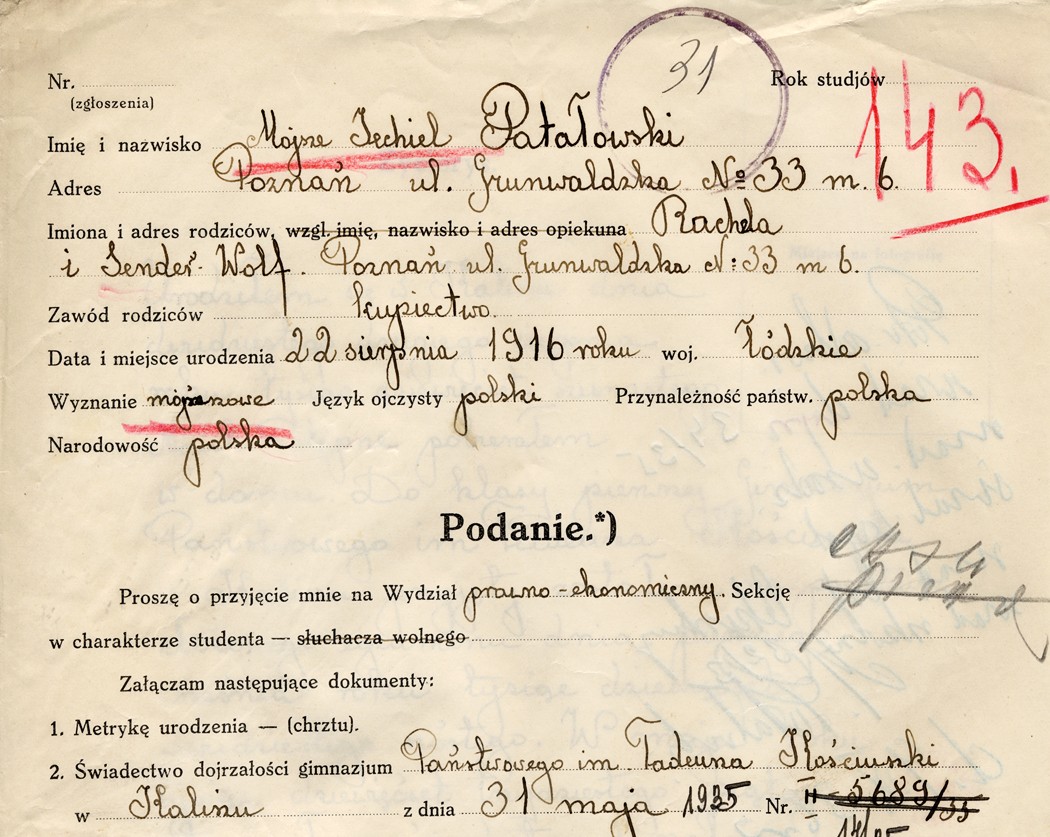 31
Nr. Rok studjów
(zgłoszenia) 143.
Imię i nazwisko Mojsze Jechiel Patałowski
Adres Poznań ul. Grunwaldzka № 33 m. 6.
Imiona i adres rodziców, wzgl. imię, nazwisko i adres opiekuna Rachela
i Sender-Wolf. Poznań ul. Grunwaldzka N: 33 m 6.
Zawód rodziców kupiectwo.
Data i miejsce urodzenia 22 sierpnia 1916 roku woj. Łódzkie
Wyznanie mojżeszowe Język ojczysty polski Przynależność państw. polska
Narodowość polska
Podanie.*)
Proszę o przyjęcie mnie na Wydział prawno-ekonomiczny. Sekcję
w charakterze studenta — słuchacza wolnego
Załączam następujące dokumenty:
1. Metrykę urodzenia — (chrztu).
2. Świadectwo dojrzałości gimnazjum Państwowego im. Tadeusza Kościuszki
w Kaliszu z dnia 31 maja 1935 Nr. II 5689/35